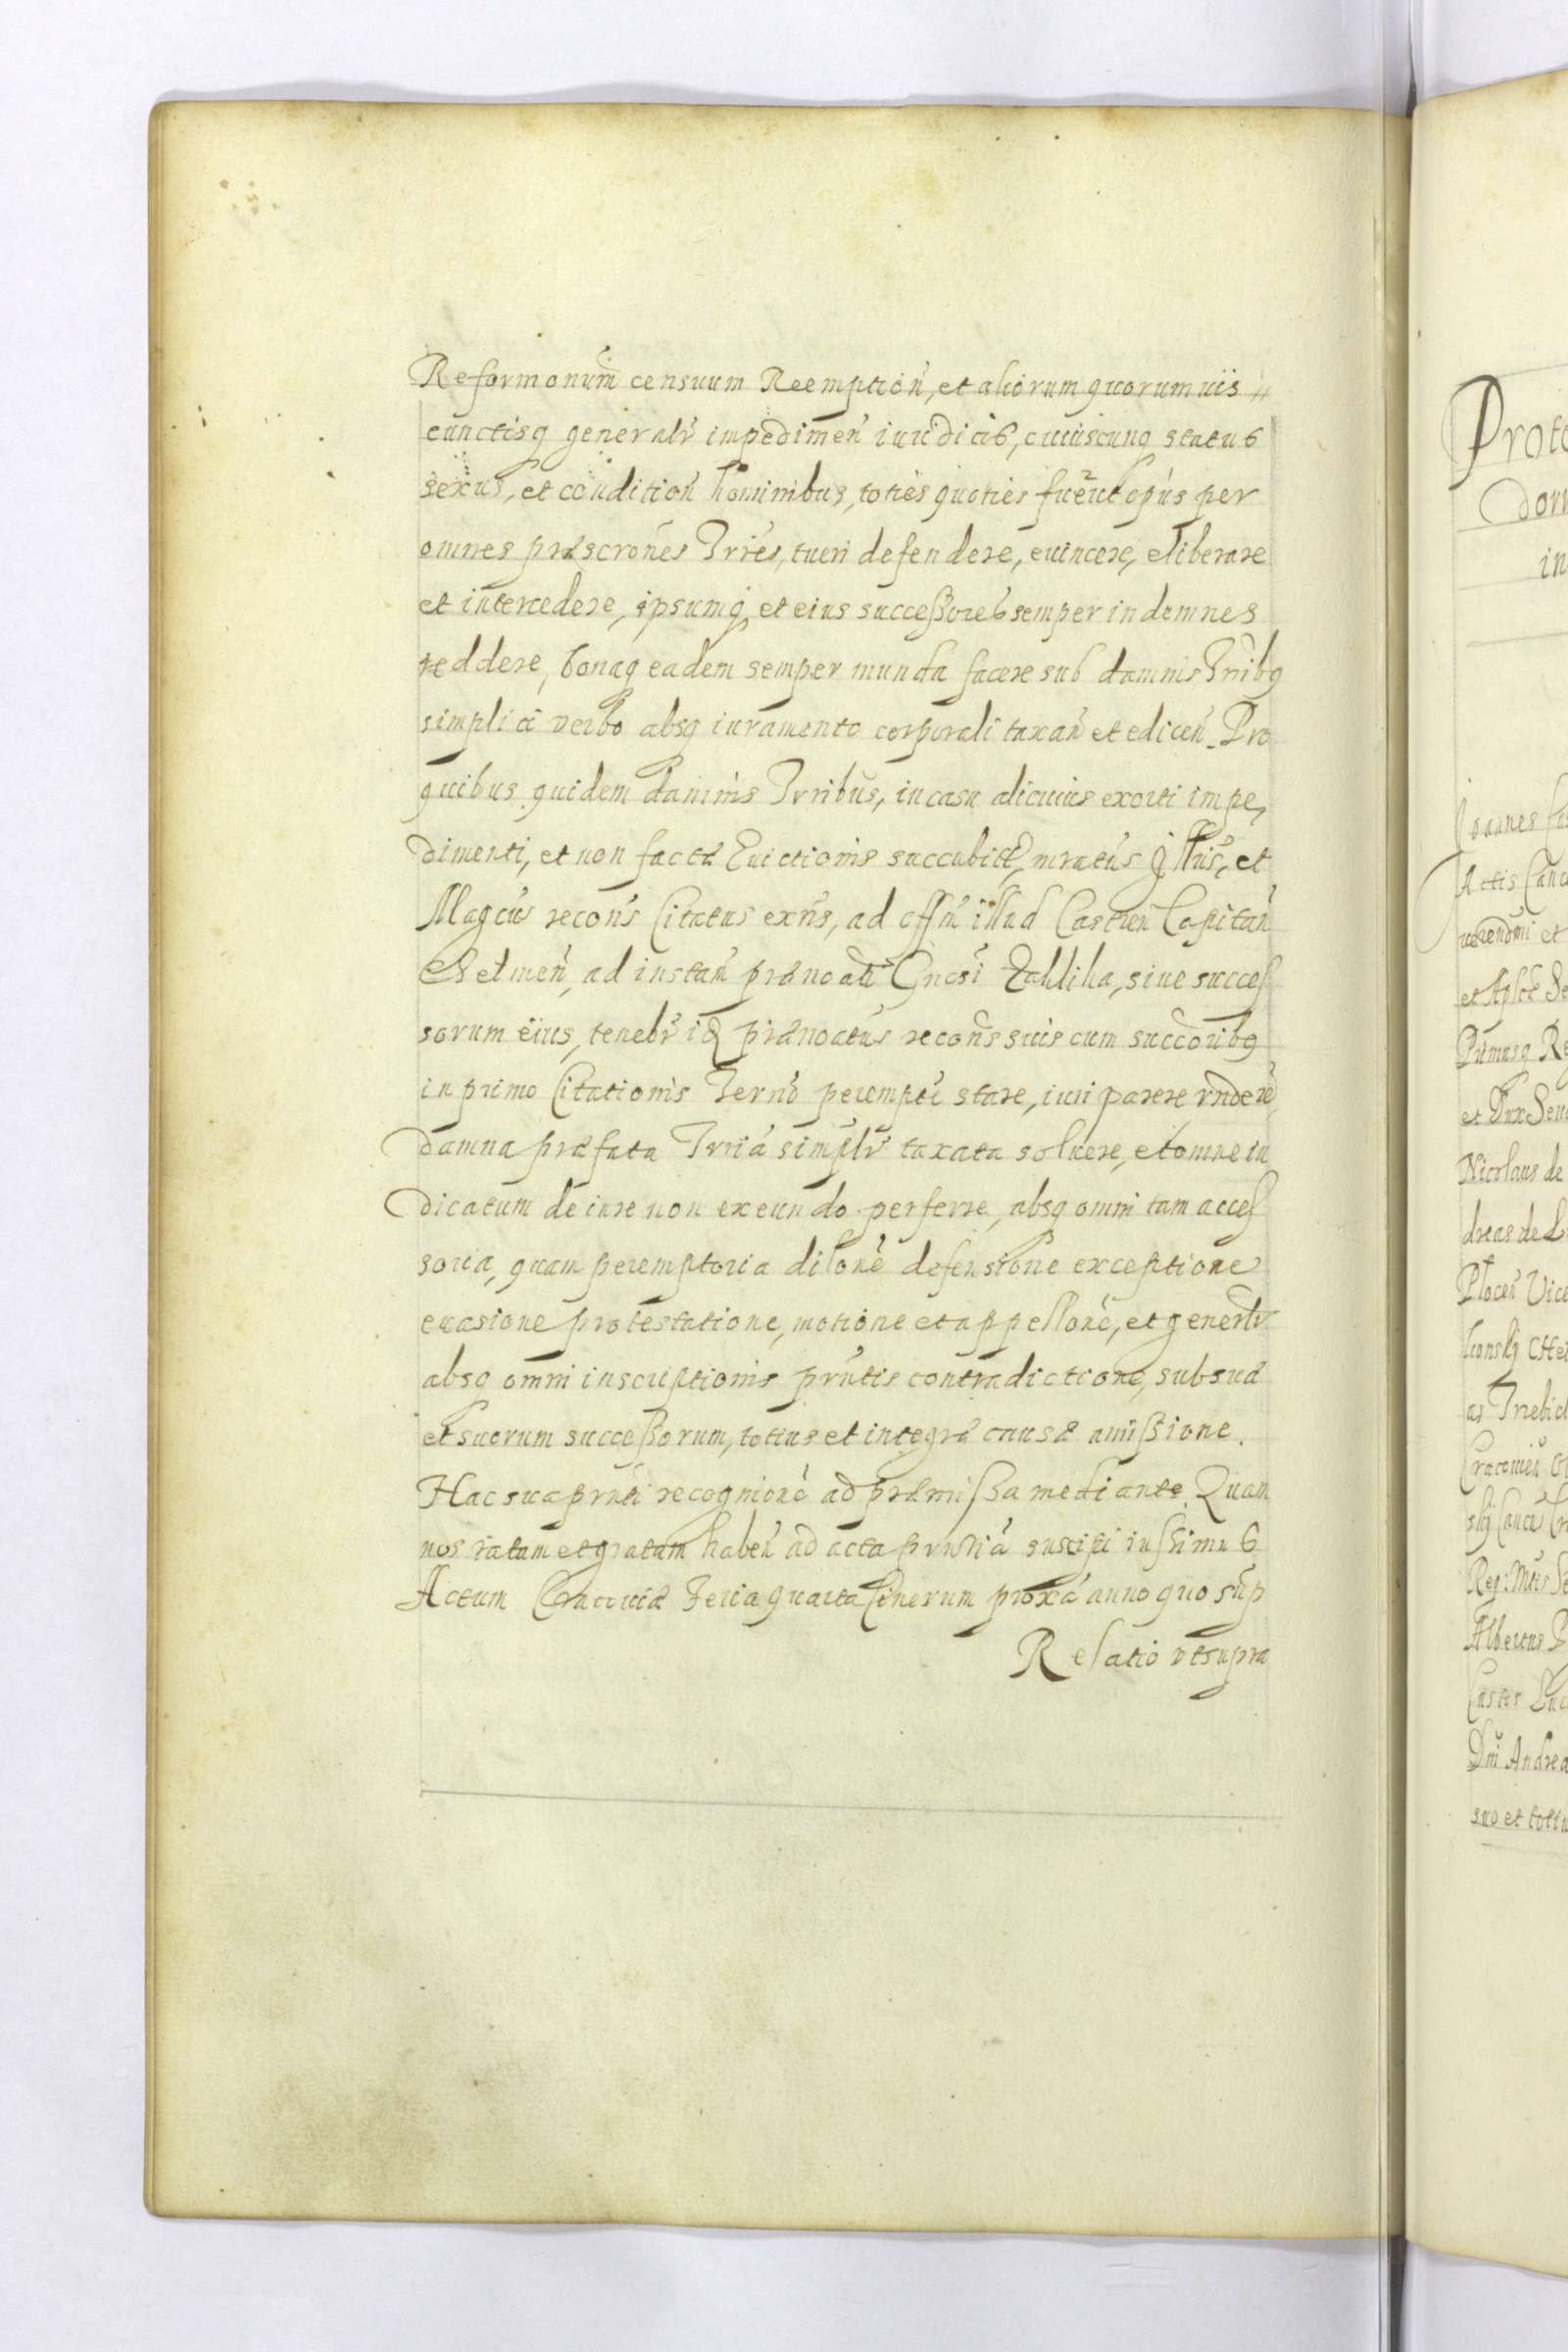 Reformonum̃ censuum Reemption̄, et aliorum quorumuis //
cunctisq generalr̄ impedimen̄ iuridicis, cuiuscunq status
sexus, et condition̄ hominibus, toties quoties fuerit opus per
omnes præscrones Trr̃es, tueri defendere, euincere, eliberare
et intercedere, ipsumq, et eius successores semper indemnes
reddere, bonaq eadem semper munda facere sub damnis Trr̃ibq
simplici verbo absq iuramento corporali taxan̄ et edicen̄. Pro
quibus quidem damnis Trr̃ibus, in casu alicuius exorti impe,
dimenti, et non factæ Euictionis succubitæ,
Magcus recon̄s Citatus exn̄s, ad offm̄ illud Castren̄ Capitan̄
ad instan̄ prænoati Gn̄osi sine succes
sorum eius, tenebr̄ idq prænoatus recon̄s suis cum succoribq
in primo Citationis Term̄o perempt̄e stare, iuri parere rn̄dere
damna præfata Trr̃ia simplr̄ taxata soluere, et omne iu
dicatum de iure non exeundo perferre, absq omni tam acces
soria, quam peremptoria dilōne defensione exceptione
euasione protestatione, motione et appellōne, et generalr̄
absq omni inscriptionis pn̄tis contradictione, sub suæ
et suorum successorum, totius et integræ causæ amissione.
Hac sua pn̄ti recognitione ad præmissa mediante. Quam
nos ratam et gratam haben̄ ad acta pn̄tia suscipi iussimus
Actum Cracouiæ Feria quarta Cinerum proxa anno quo sup
Relatio vt supra
Prote
dom
in
Joannes
Actis Canc
uerendmi et
et Aplcæ Se
Primasq Re
et Dux Seu
Nicolaus de
dreas de L
Plocen̄ Vice
as Trzebic
Cracouien̄
Reg: Mtis
Albertus
Dni Andrea
suo et totiu